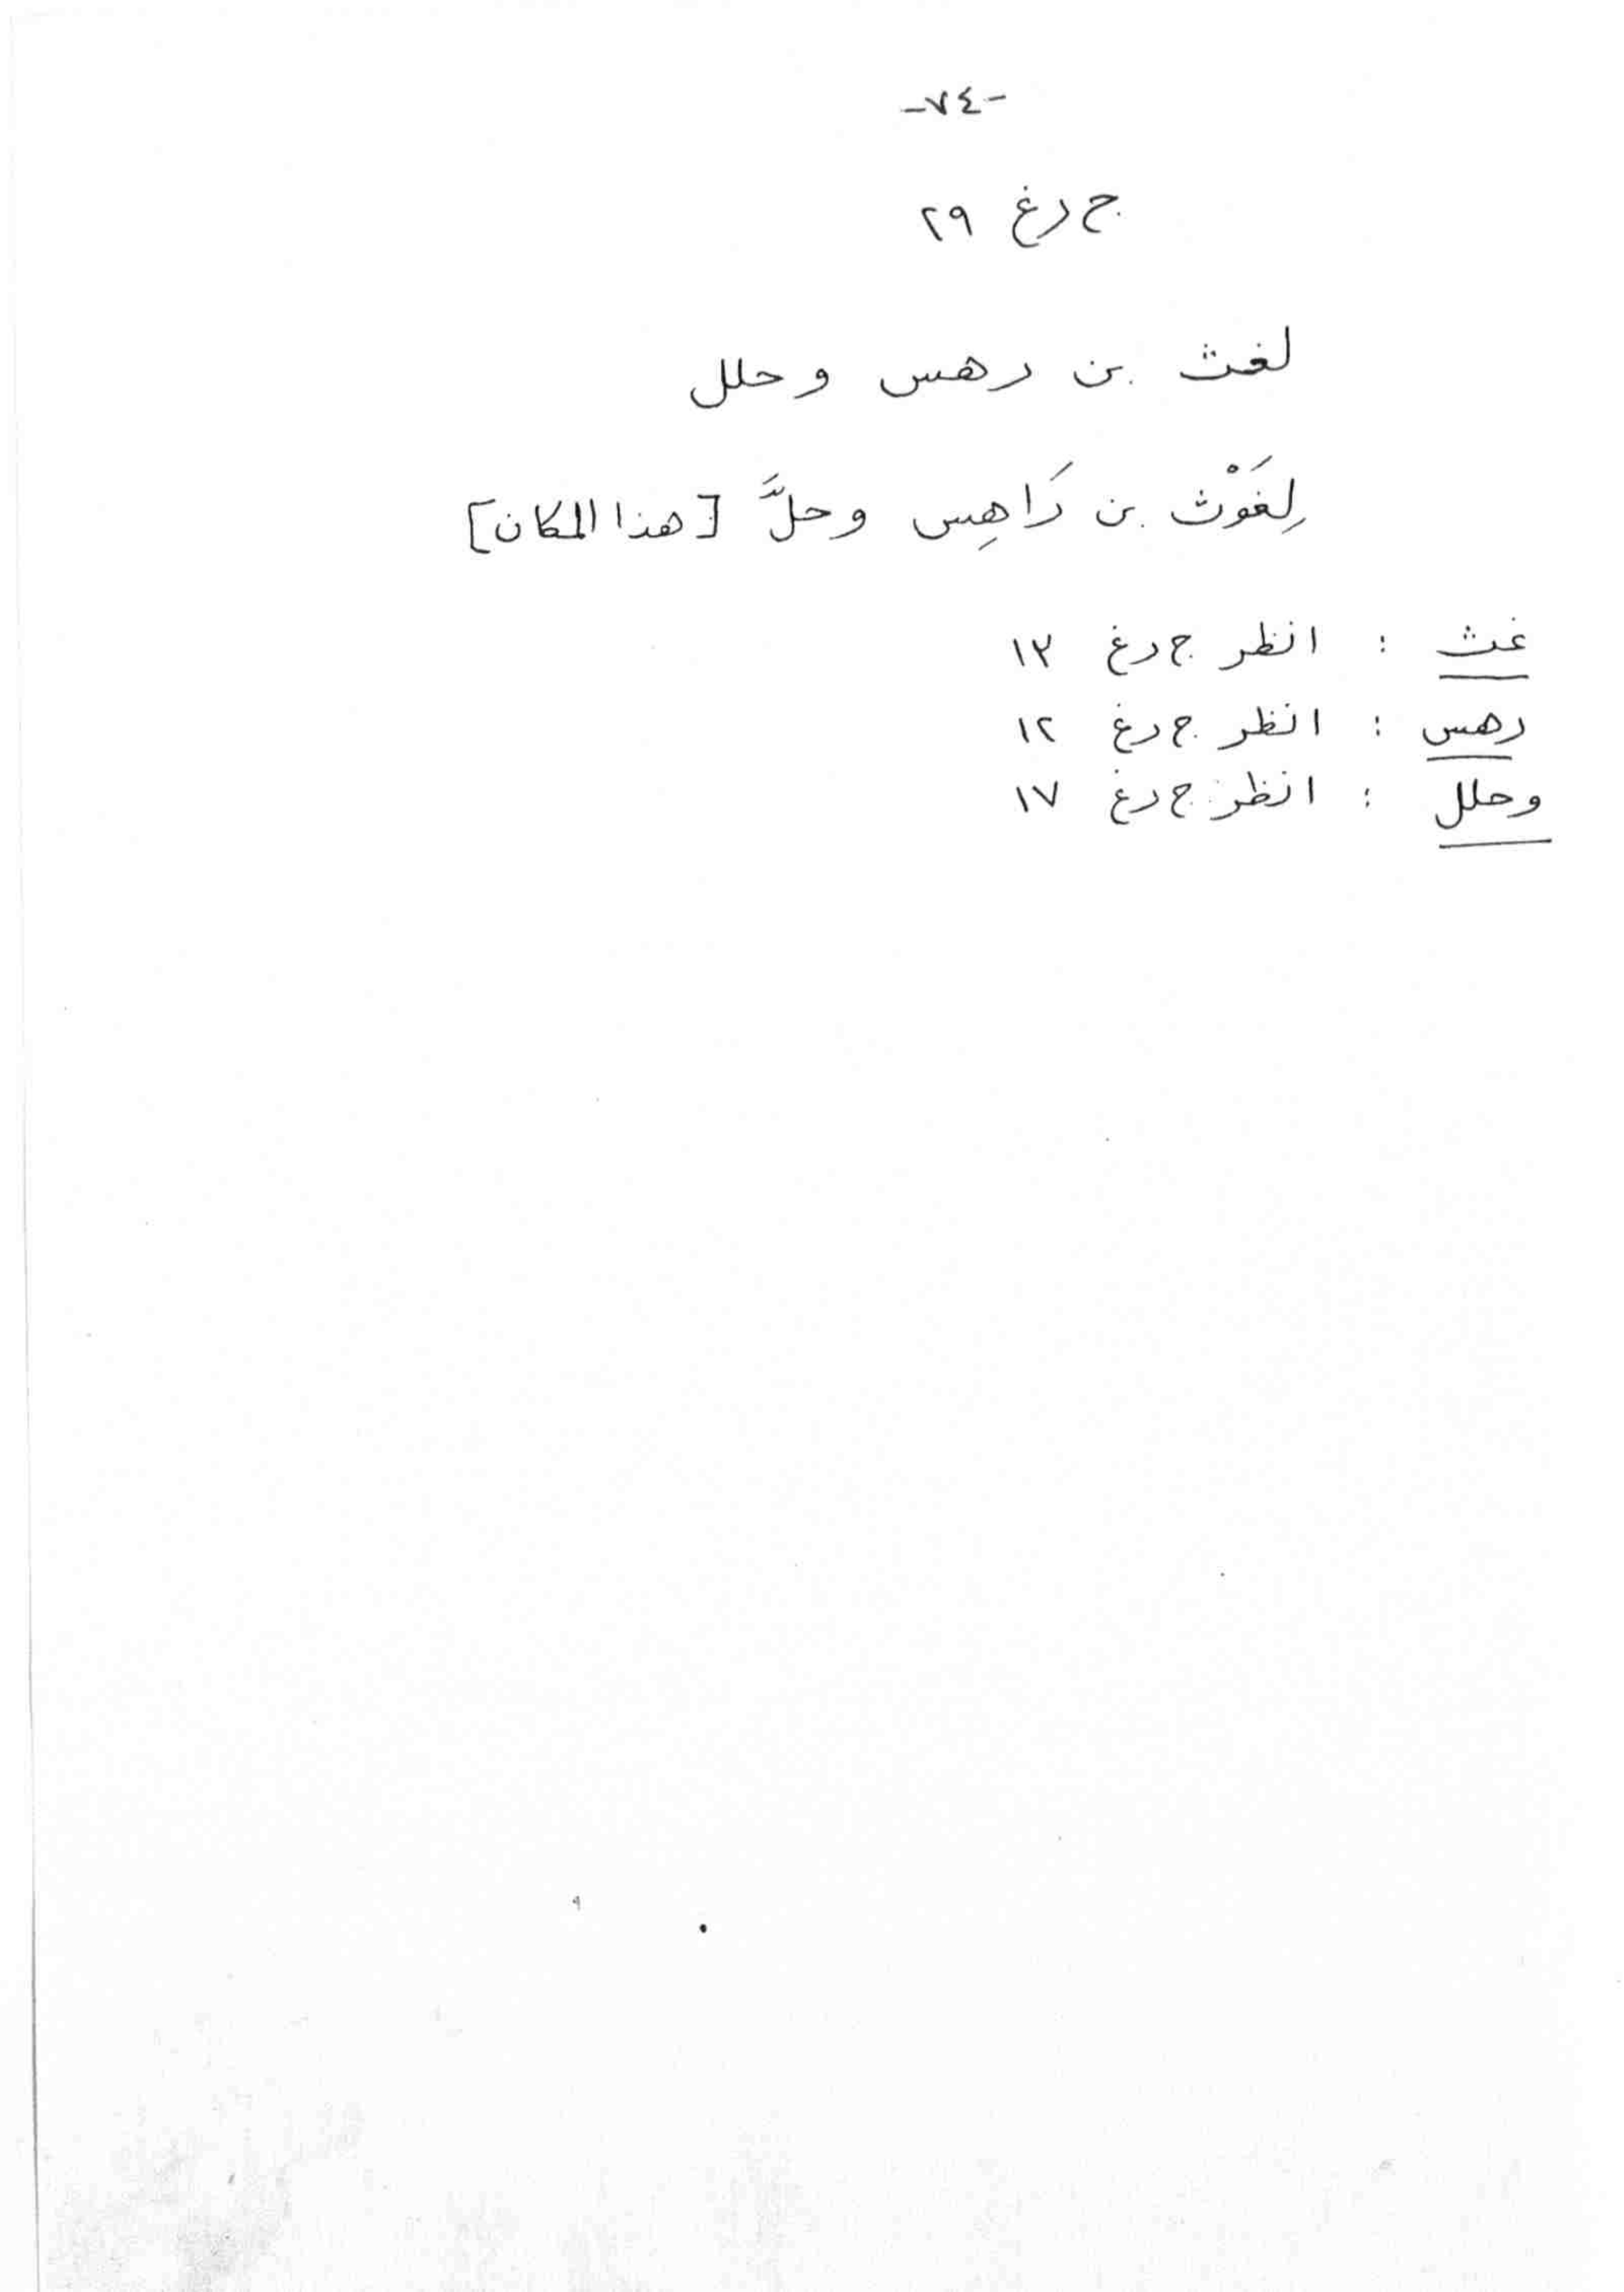 -٧٤-
ج رغ ٢٩
لغث بن رهس وحلل
لِغَوْث بن رَاهِس وحلَّ [هذا المكان]
غث : انظر ج رغ ١٣
رهس : انظر ج رغ ١٢
وحلل : انظر ج رغ ١٧